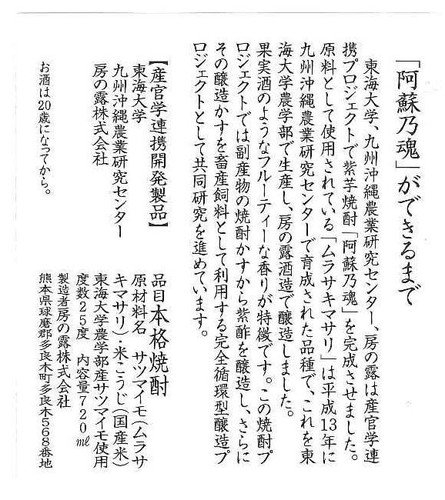 「阿蘇乃魂」ができるまで
東海大学、九州沖縄農業研究センター、房の露は産官学連
携プロジェクトで紫芋焼酎「阿蘇乃魂」を完成させました。
原料として使用されている「ムラサキマサリ」は平成13年に
九州沖縄農業研究センターで育成された品種で、これを東
海大学農学部で生産し、房の露酒造で醸造しました。
果実酒のようなフルーティーな香りが特徴です。この焼酎プ
ロジェクトでは副産物の焼酎かすから紫酢を醸造し、さらに
その醸造かすを畜産飼料として利用する完全循環型醸造プ
ロジェクトとして共同研究を進めています。
【産官学連携開発製品】
東海大学
九州沖縄農業研究センター
房の露株式会社
お酒は20歳になってから。
品目本格焼酎
原材料名 サツマイモ(ムラサ
キマサリ)・米こうじ(国産米)
東海大学農学部産サツマイモ使用
度数25度 内容量720㎖
製造者房の露株式会社
熊本県球磨郡多良木町多良木568番地